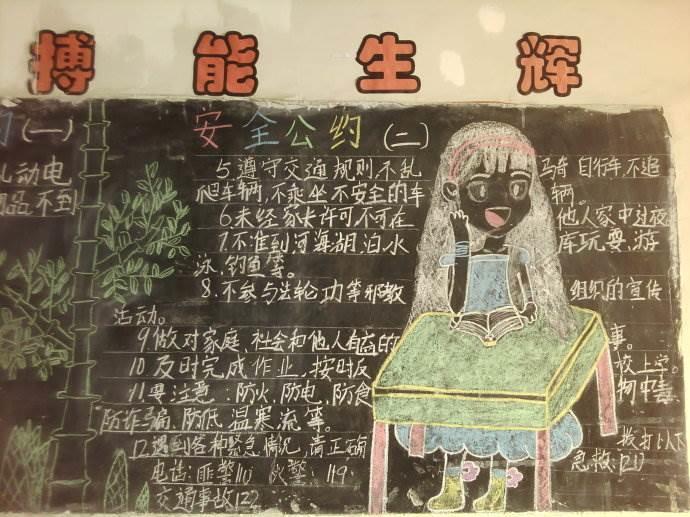 搏能生辉
安全公约(二)
(一)
动电
品不到
5遵守交通规则,不乱 骑自行车,不追
爬车辆,不乘坐不安全的车 辆。
6未经家长许可不可在 他人家中过夜
7.不准到河海湖泊水 库玩耍,游
泳,钓鱼等。
8.不参与法轮功等邪教 组织的宣传
活动。
9做对家庭,社会和他人有益的 事。
10及时完成作业,按时 校上学。
11要注意:防火,防电,防食 物中毒
防诈骗,防低温寒流等。
12遇到各种紧急情况,请正确 拨打以下
电话:匪警110 火警:119 急救:120
交通事故122